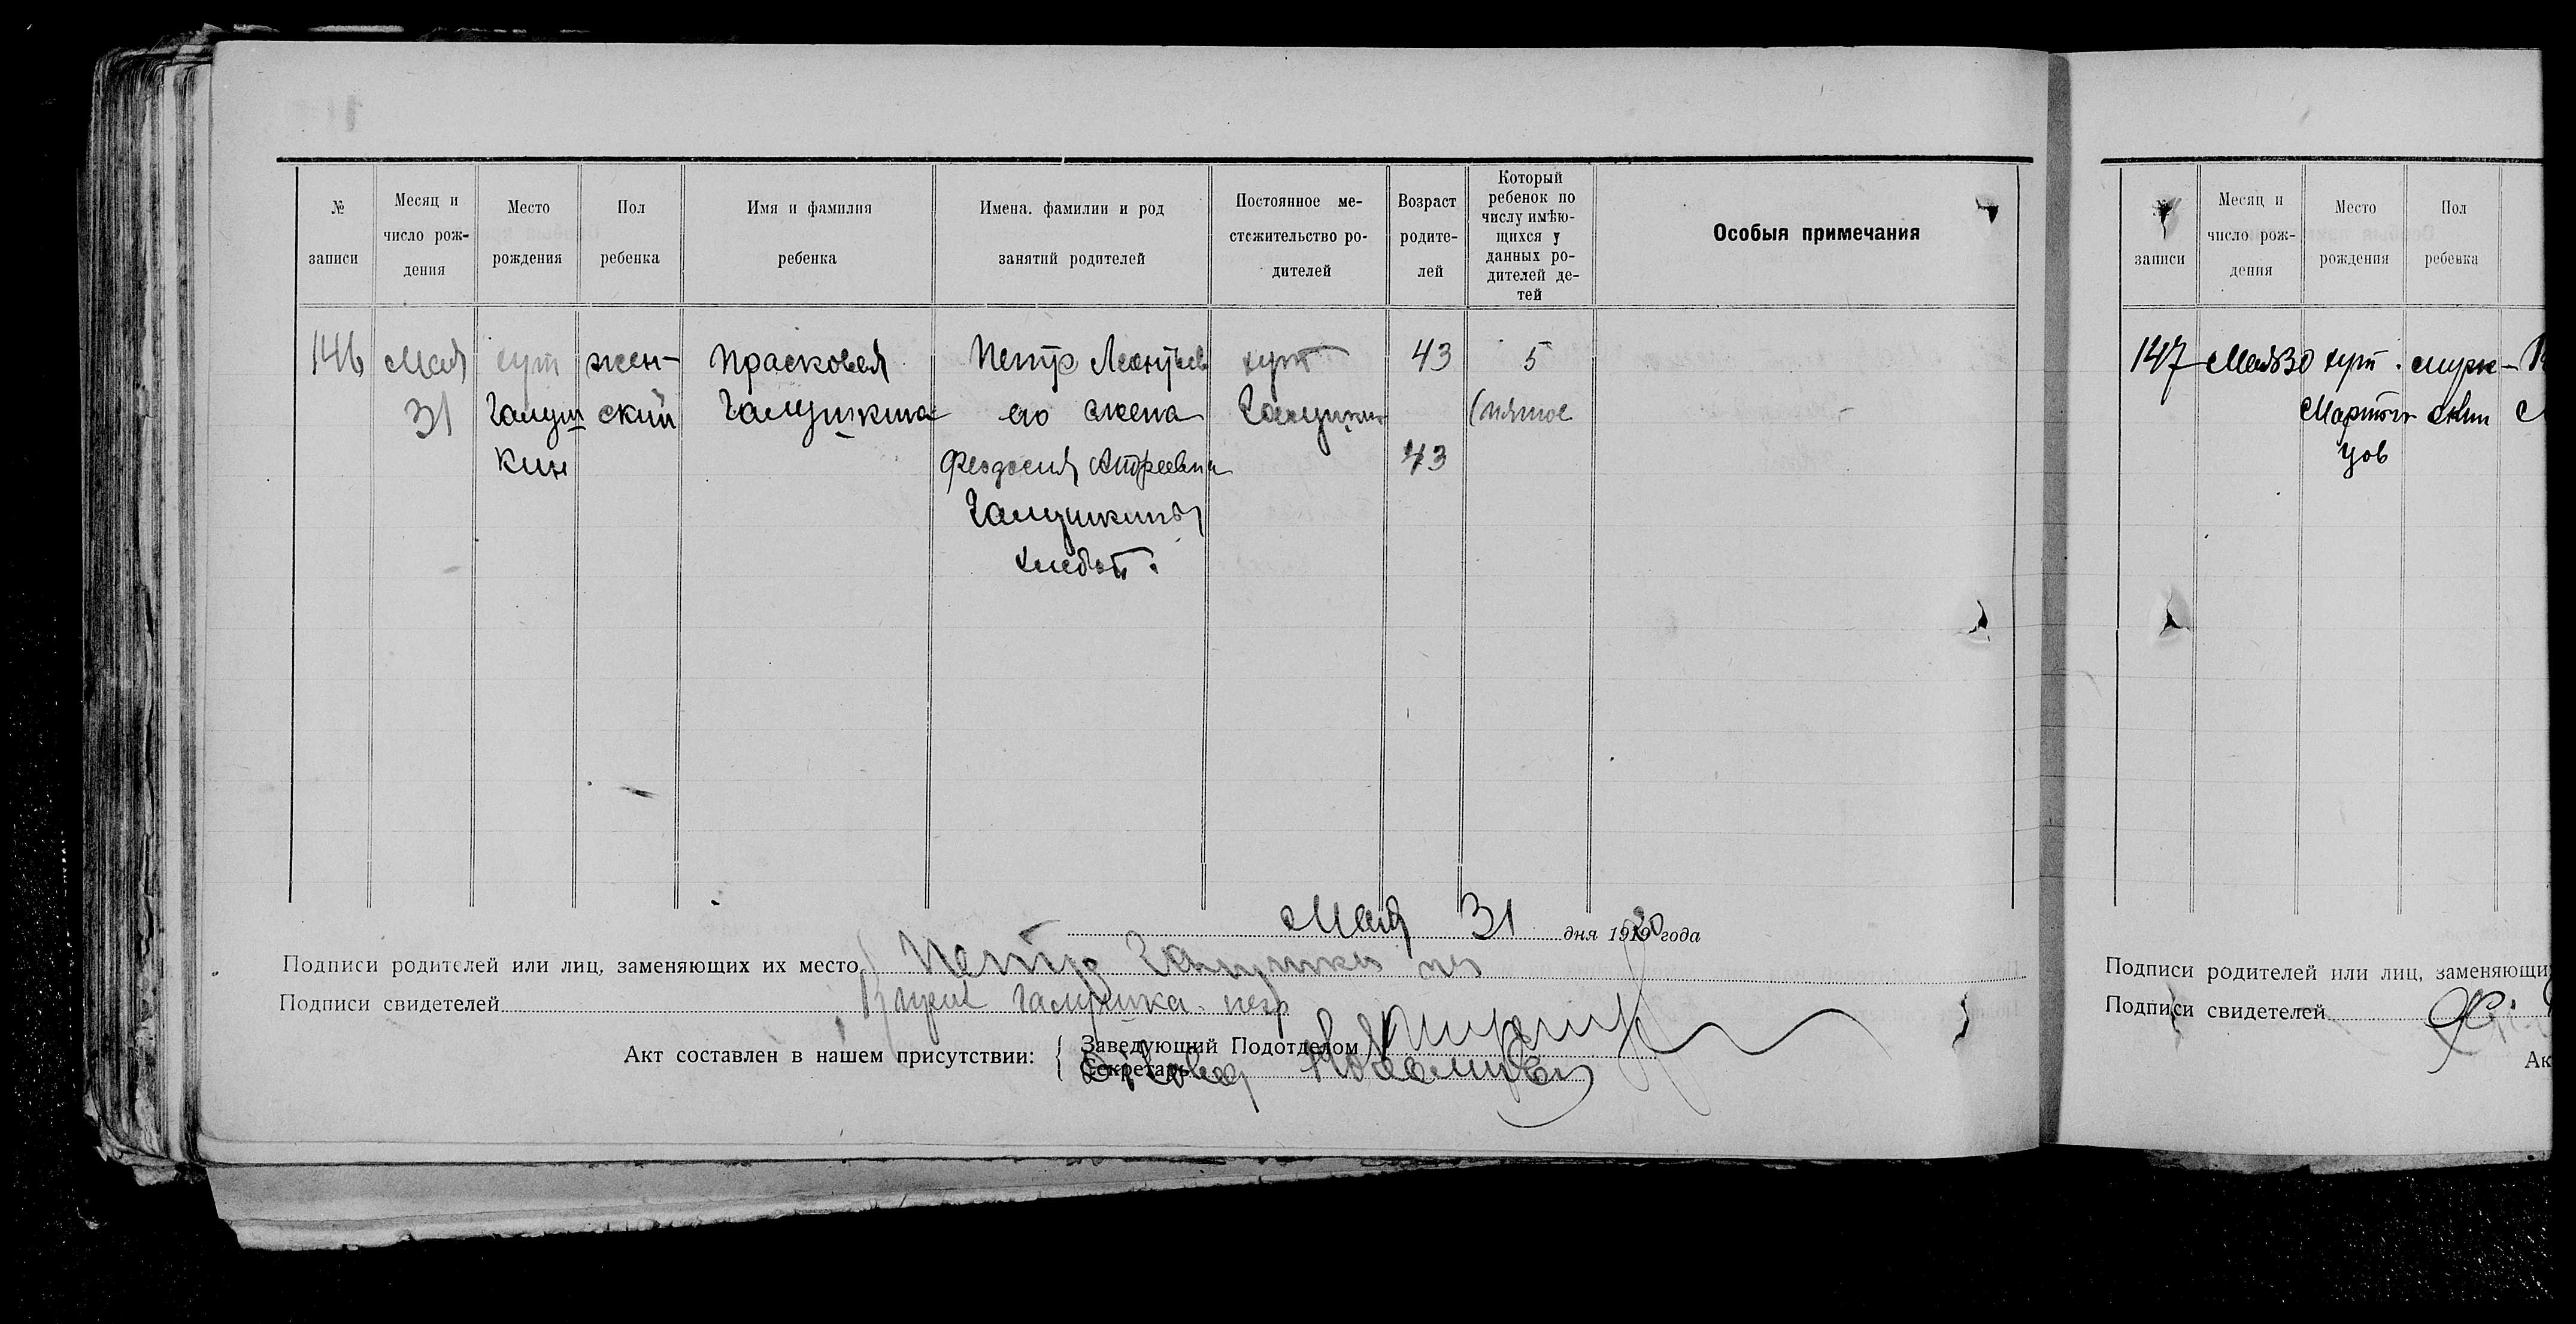 № записи
Месяц и число рож-дения
Место рождения
Пол ребенка
Имя и фамилия ребенка
Имена. фамилии и род занятий родителей
Постоянное ме-стожительство ро-дителей
Возраст родите-лей
Который ребенок по числу имѣю-щихся у данных ро-дителей де-тей
Особыя примечания
146 Мая хут жен- Прасковея Петр Леонтьев хут 43 5
31 Галуш ский Галушкина его жена Галушкин (пятое
кин Феодосия 43
Галушкины
хлебоп.
Мая 31 дня 1920 года
Подписи родителей или лиц, заменяющих их место Петр
Подписи свидетелей
Акт составлен в нашем присутствии:
Заведующий Подотделом
Секретарь
№ записи
Месяц и число рож-дения
Место рождения
Пол ребенка
147 Мая 30 хут. муж-
Мартын ский
цов
Подписи родителей или лиц, заменяющи
Подписи свидетелей
Ак